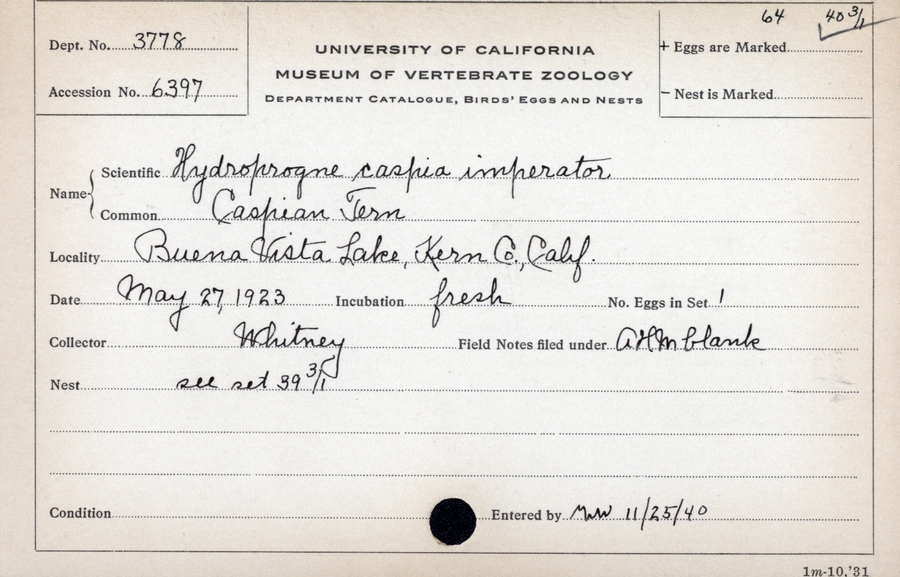 Dept. No. 3778
Accession No. 6397
UNIVERSITY OF CALIFORNIA
MUSEUM OF VERTEBRATE ZOOLOGY
DEPARTMENT CATALOGUE, BIRDS' EGGS AND NESTS
64 40 3/1
+ Eggs are Marked
- Nest is Marked
Name { Scientific Hydroprogne caspia imperator
Common Caspian Tern
Locality Buena Vista Lake, Kern Co., Calif.
Date May 27, 1923 Incubation fresh No. Eggs in Set 1
Collector Whitney Field Notes filed under AHM blank
Nest see set 39 3/1
Condition Entered by MW 11/25/40
1m-10,'31